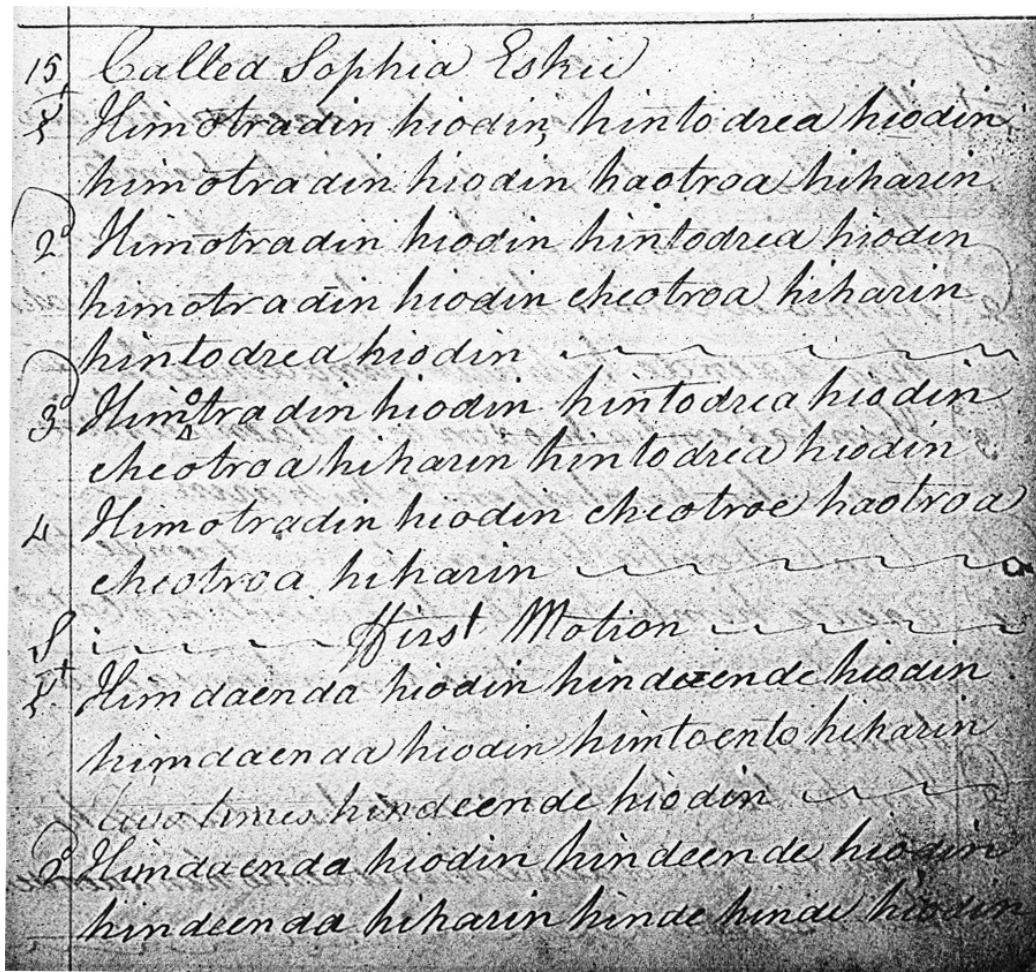 15 Called Sophia Eskie
1 Himotradin hiodin, hintodrea hiodin
himotradin hiodin haotroa hiharin
2d Himotradin hiodin hintodrea hiodin
himotradin hiodin cheotroa hiharin
hintodrea hiodin
3d Himotradin hiodin hintodrea hiodin
cheotroa hiharin hintodrea hiodin
4 Himotradin hiodin cheotroe haotroa
cheotroa hiharin
S First Motion
1 Himdaenda hiodin hindeende hiodin
himdaenda hiodin himtoento hiharin
two times hindeende hiodin
2 Himdaenda hiodin hindeende hiodin
hindeenda hiharin hinde hinde hiodin